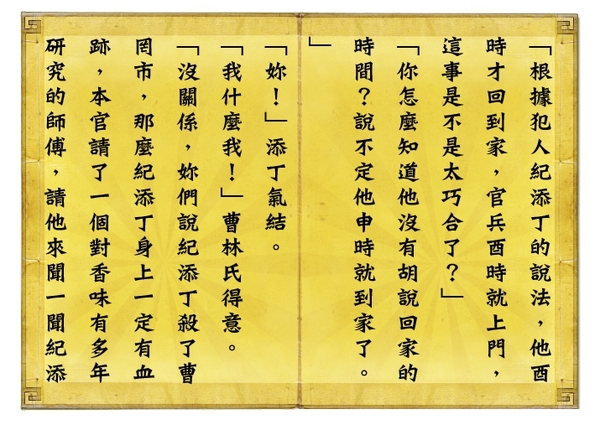 「根據犯人紀添丁的說法，他酉
時才回到家，官兵酉時就上門，
這事是不是太巧合了？」
「你怎麼知道他沒有胡說回家的
時間？說不定他申時就到家了。
」
「妳！」添丁氣結。
「我什麼我！」曹林氏得意。
「沒關係，妳們說紀添丁殺了曹
罔市，那麼紀添丁身上一定有血
跡，本官請了一個對香味有多年
研究的師傅，請他來聞一聞紀添